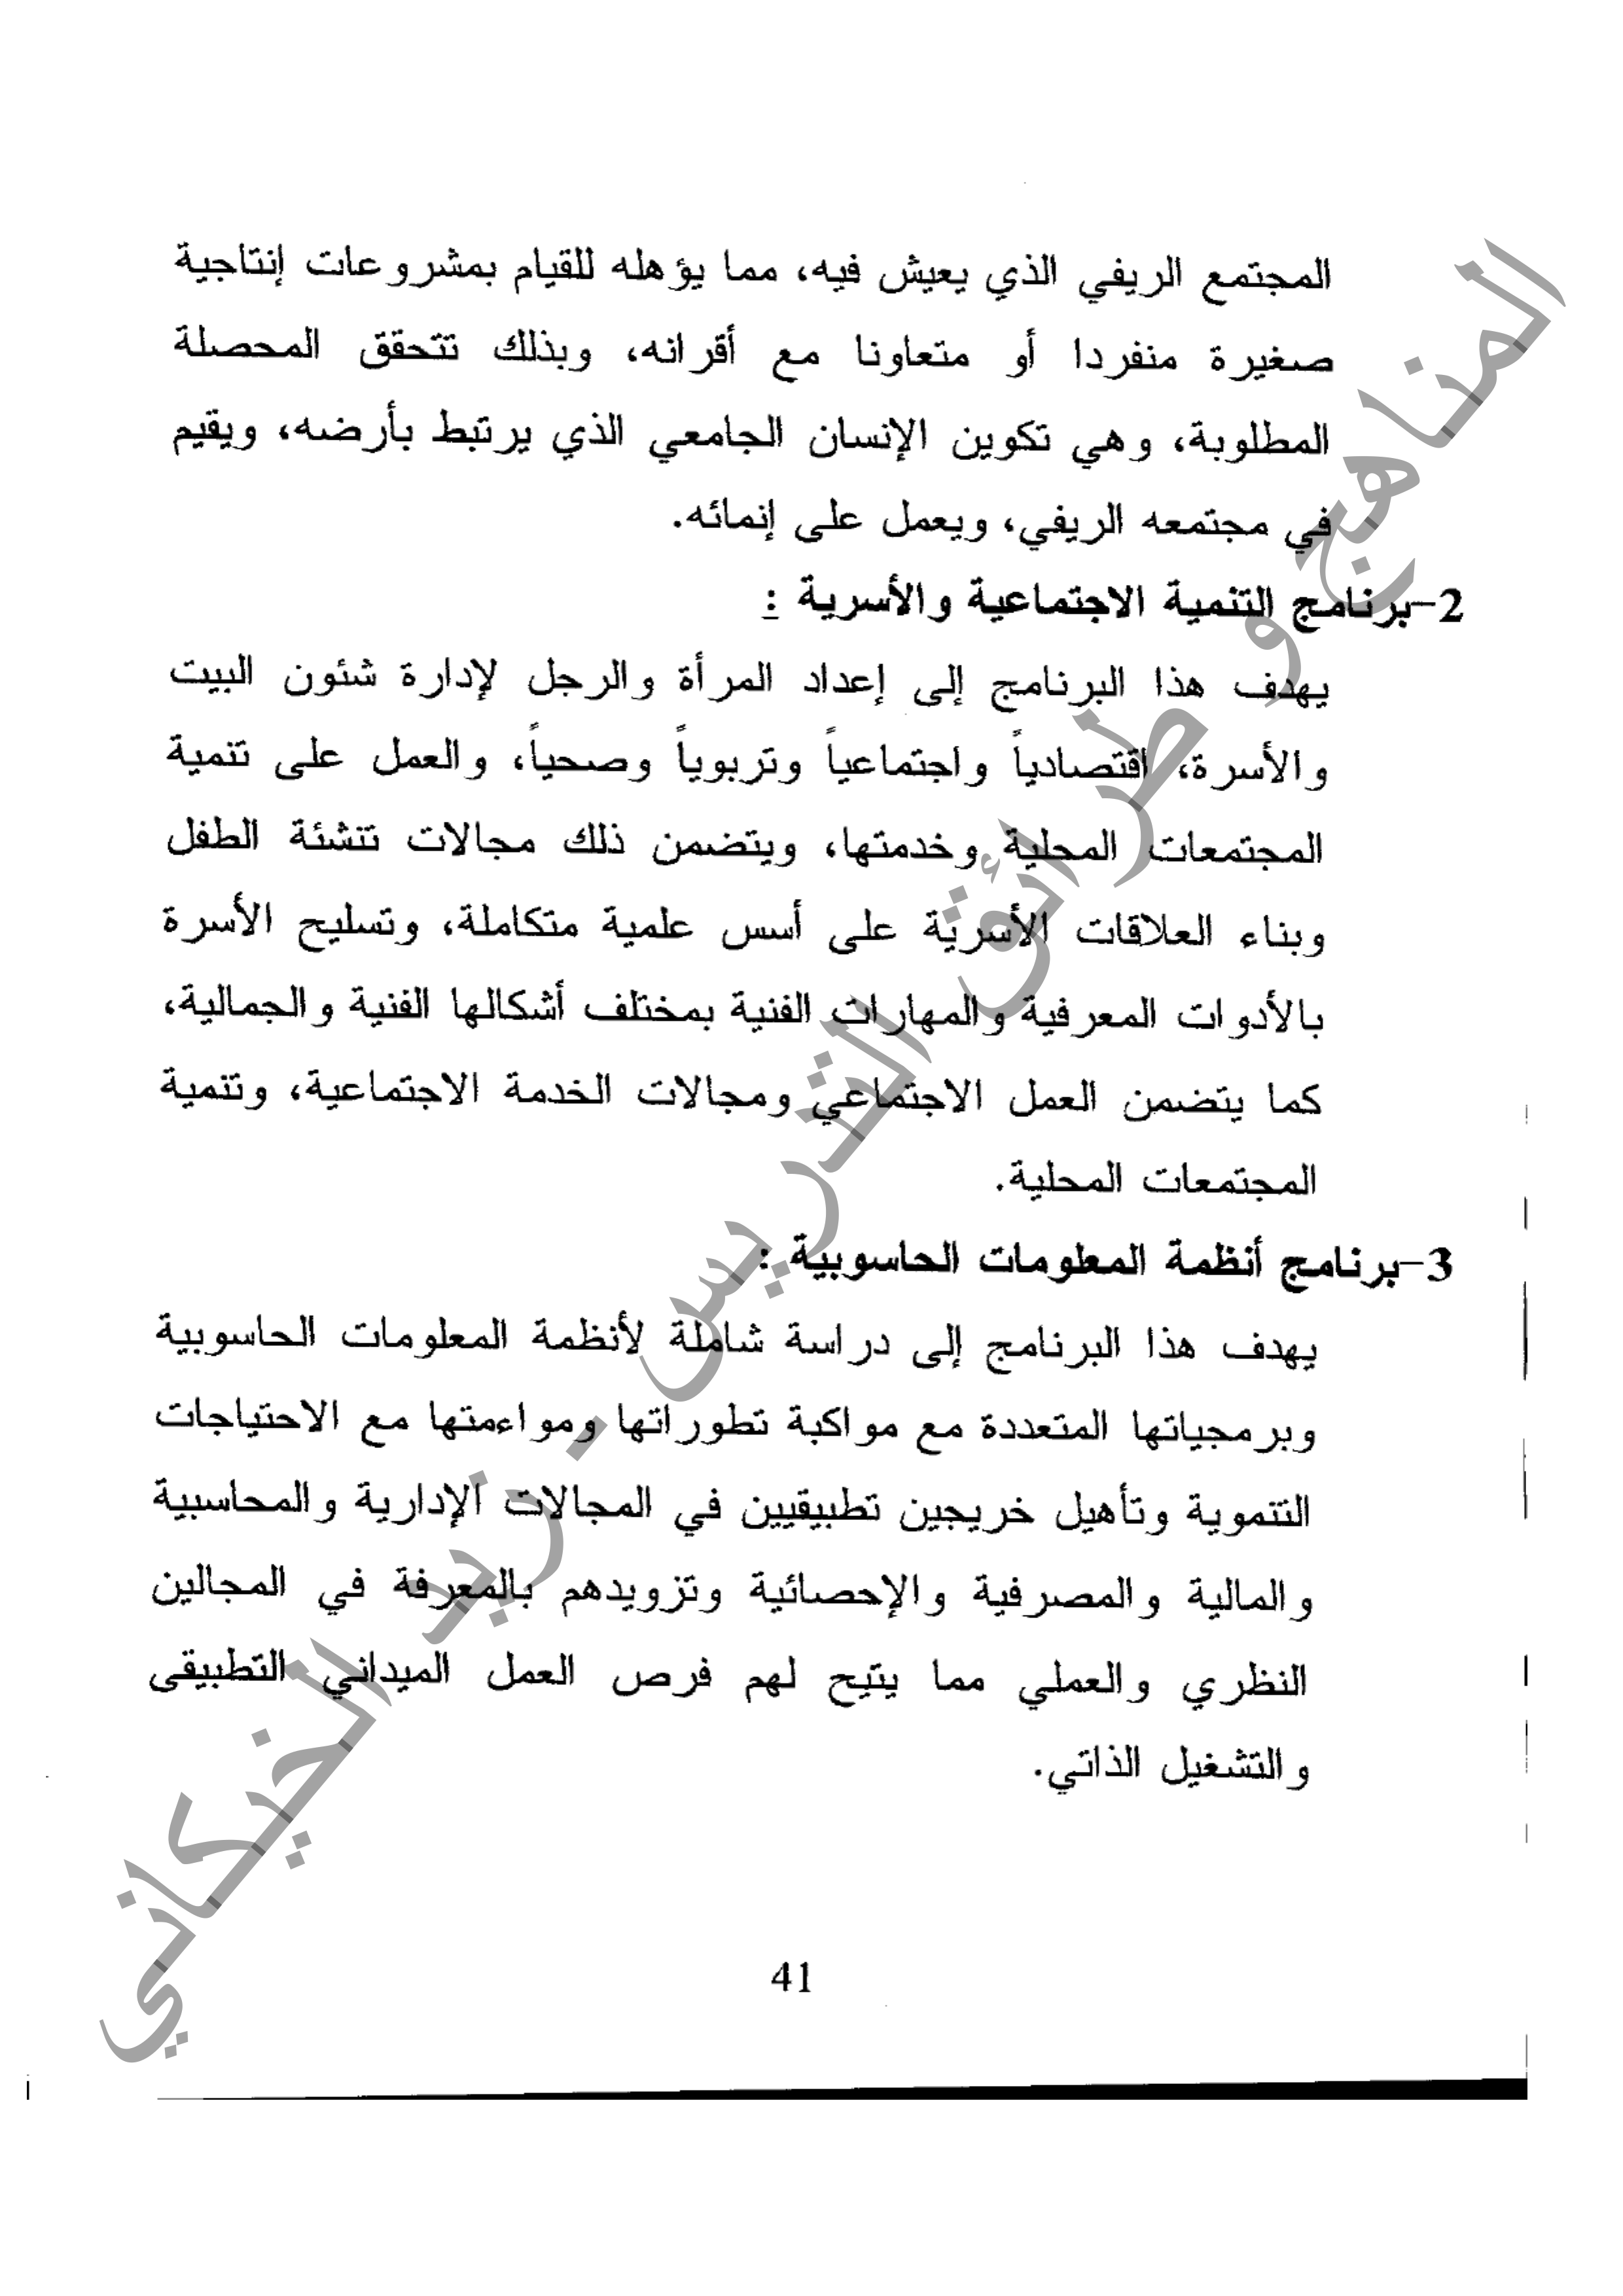 المجتمع الريفي الذي يعيش فيه، مما يؤهله للقيام بمشروعات إنتاجية
صغيرة منفردا أو متعاونا مع أقرانه، وبذلك تتحقق المحصلة
المطلوبة، وهي تكوين الإنسان الجامعي الذي يرتبط بأرضه، ويقيم
في مجتمعه الريفي، ويعمل على إنمائه.
2-برنامج التنمية الاجتماعية والأسرية :
يهدف هذا البرنامج إلى إعداد المرأة والرجل لإدارة شئون البيت
والأسرة، اقتصادياً واجتماعياً وتربوياً وصحياً، والعمل على تنمية
المجتمعات المحلية وخدمتها، ويتضمن ذلك مجالات تنشئة الطفل
وبناء العلاقات الأسرية على أسس علمية متكاملة، وتسليح الأسرة
بالأدوات المعرفية والمهارات الفنية بمختلف أشكالها الفنية والجمالية،
كما يتضمن العمل الاجتماعي ومجالات الخدمة الاجتماعية، وتنمية
المجتمعات المحلية.
3-برنامج أنظمة المعلومات الحاسوبية :
يهدف هذا البرنامج إلى دراسة شاملة لأنظمة المعلومات الحاسوبية
وبرمجياتها المتعددة مع مواكبة تطوراتها ومواءمتها مع الاحتياجات
التنموية وتأهيل خريجين تطبيقيين في المجالات الإدارية والمحاسبية
والمالية والمصرفية والإحصائية وتزويدهم بالمعرفة في المجالين
النظري والعملي مما يتيح لهم فرص العمل الميداني التطبيقى
والتشغيل الذاتي.
41
المناهج وطرائق التدريس - زيد الخيكاني